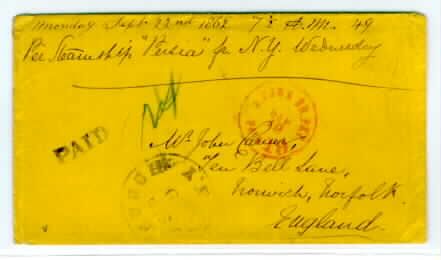 Monday Sept. 22nd 1862 7 P.M. 49
Per Steamship "Persia" fr N.Y. Wednesday
24
PAID
Mr John
Ten Bell Lane,
Norwich, Norfolk.
England.